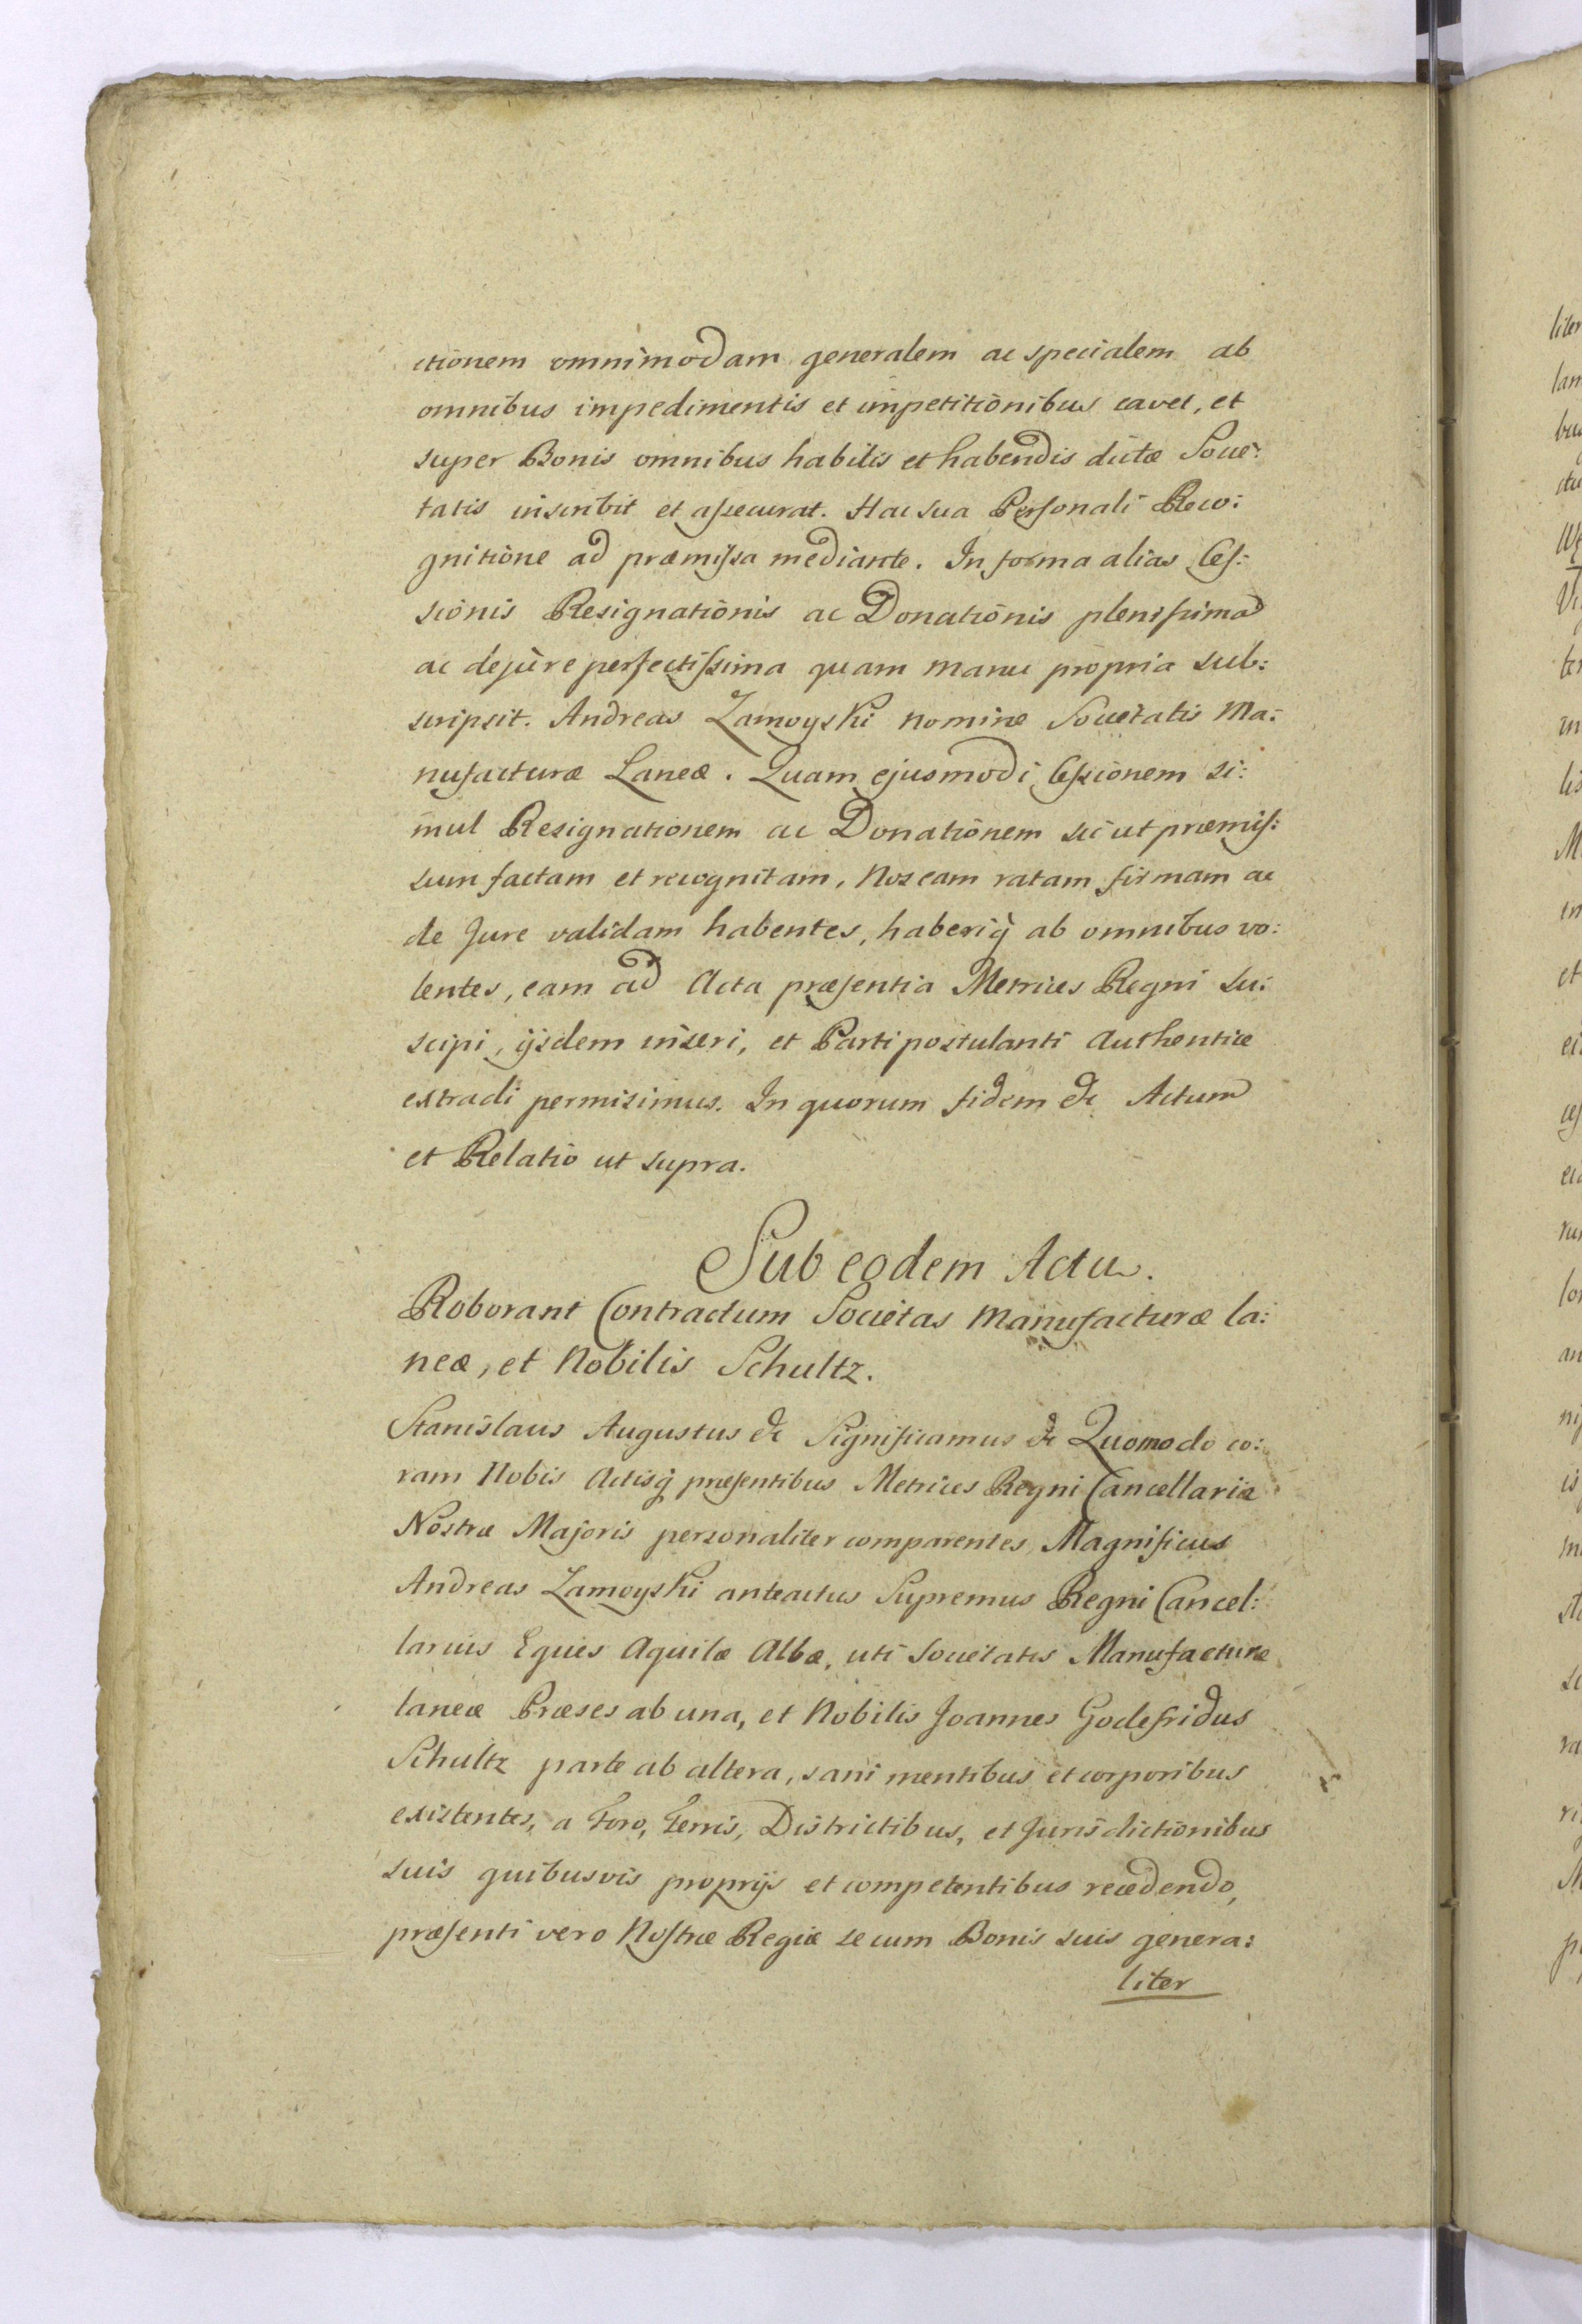 ctionem omnimodam generalem ac specialem ab
omnibus impedimentis et impetitionibus cavet, et
super Bonis omnibus habitis et habendis dictæ Socie:
tatis inscribit et aſsecurat. Hac sua Perſonali Reco:
gnitione ad præmiſsa mediante. In forma alias Ceſ:
sionis Resignationis ac Donationis pleniſsima
ac dejure perfectiſsima quam manu propria sub:
scripsit. Andreas Zamoyski nomine Societatis Ma:
nufacturæ Laneæ. Quam ejusmodi Ceſsionem si:
mul Resignationem ac Donationem sic ut præmiſ:
sum factam et recognitam, Nos eam ratam firmam ac
de Jure validam habentes, haberiq̃ ab omnibus vo:
lentes, eam ad Acta præſentia Metrices Regni su:
scipi, ijsdem inseri, et Parti postulanti Authentice
extradi permisimus. In quorum fidem &c Actum
et Relatio ut supra.
Sub eodem Actu.
Roborant Contractum Societas Manufacturæ la:
neæ, et Nobilis Schultz.
Stanislaus Augustus &c Significamus &c Quomodo co:
ram Nobis Actisq̃ præſentibus Metrices Regni Cancellariæ
Nostræ Majoris personaliter comparentes, Magnificus
Andreas Zamoyski anteactus Supremus Regni Cancel:
larius Eques Aquilæ Albæ, uti Societatis Manufacturæ
laneæ Præses ab una, et Nobilis Joannes Godefridus
Schultz parte ab altera, sani mentibus et corporibus
existentes, a Foro, Terris, Districtibus, et Jurisdictionibus
suis quibusvis proprijs et competentibus recedendo,
præſenti vero Noſtræ Regiæ se cum Bonis suis genera:
liter